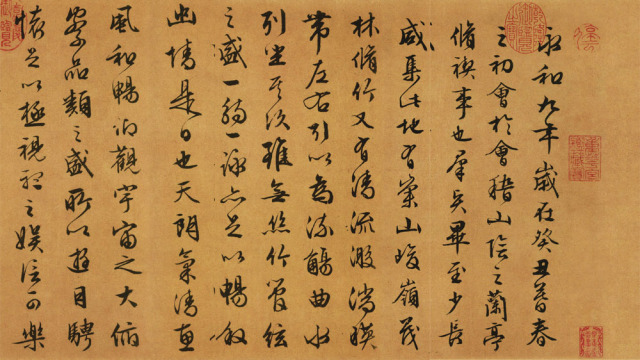 永和九年歲在癸丑暮春
之初會於會稽山陰之蘭亭
脩禊事也群賢畢至少長
咸集此地有崇山峻嶺茂
林脩竹又有清流激湍映
帶左右引以為流觴曲水
列坐其次雖無絲竹管絃
之盛一觴一詠亦足以暢敘
幽情是日也天朗氣清惠
風和暢仰觀宇宙之大俯
察品類之盛所以遊目騁
懷足以極視聽之娛信可樂